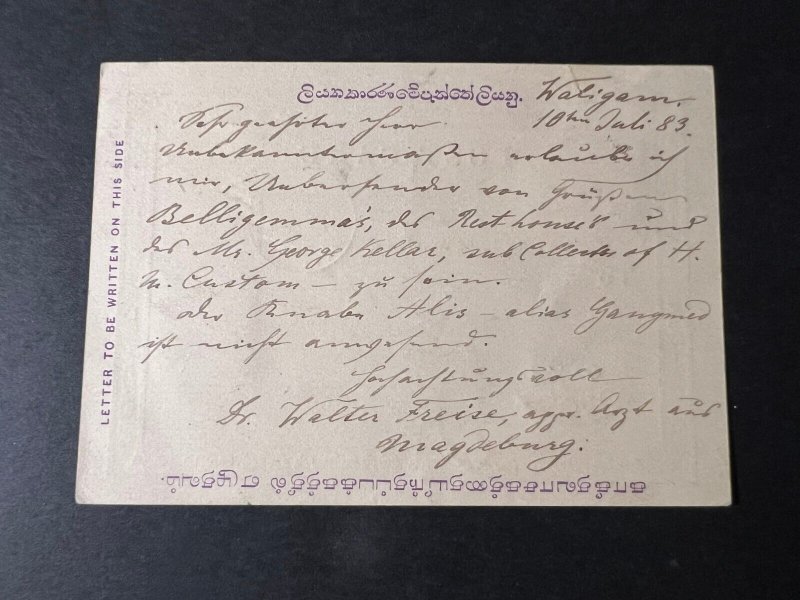 ලියනකාරණමේපැත්තේලියනු.
Waligam.
10ten Juli 83.
Sehr geehrter Herr
Unbekanntermaßen erlaube ich
mir, Uebersender von Grüßen
Belligemma's, des Resthouse's und
des Mr. George Kellar, sub Collector of H.
M. Custom — zu sein.
Der Knabe Alis — alias Ganymed
ist nicht anwesend.
Hochachtungsvoll
Dr. Walter Freise, appr. Arzt aus
Magdeburg.
LETTER TO BE WRITTEN ON THIS SIDE